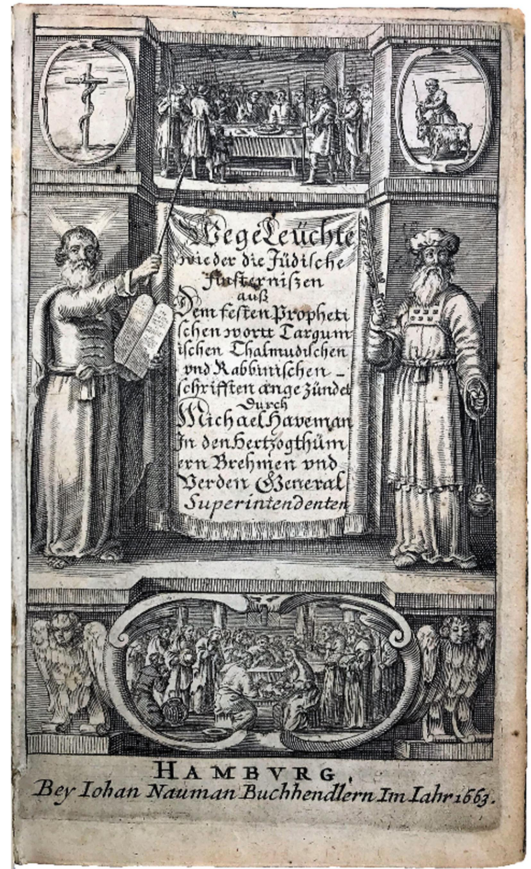 WegeLeüchte
wieder die Jüdische
finsternißen
auß
Dem festen Propheti
schen wortt Targum-
ischen Thalmudischen
vnd Rabbinischen -
schrifften ange zündet
Durch
Michael Haveman
In den Hertzogthüm
ern Brehmen vnd
Verden General
Superintendenten
HAMBVRG,
Bey Iohan Nauman Buchhendlern Im Iahr 1663.